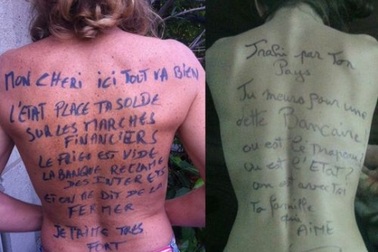 MON CHERI ICI TOUT VA BIEN
L'ÉTAT PLACE TA SOLDE
SUR LES MARCHES
FINANCIERS
LE FRIGO EST VIDE
LA BANQUE RECLAME
DES INTERETS
ET ON ME DIT DE LA
FERMER
JE T'AIME TRES
FORT
Trahi par Ton
Pays
Tu meurs pour une
dette Bancaire
ou est le
ou est L'ETAT?
on est avec toi
Ta famille
qui
AIME